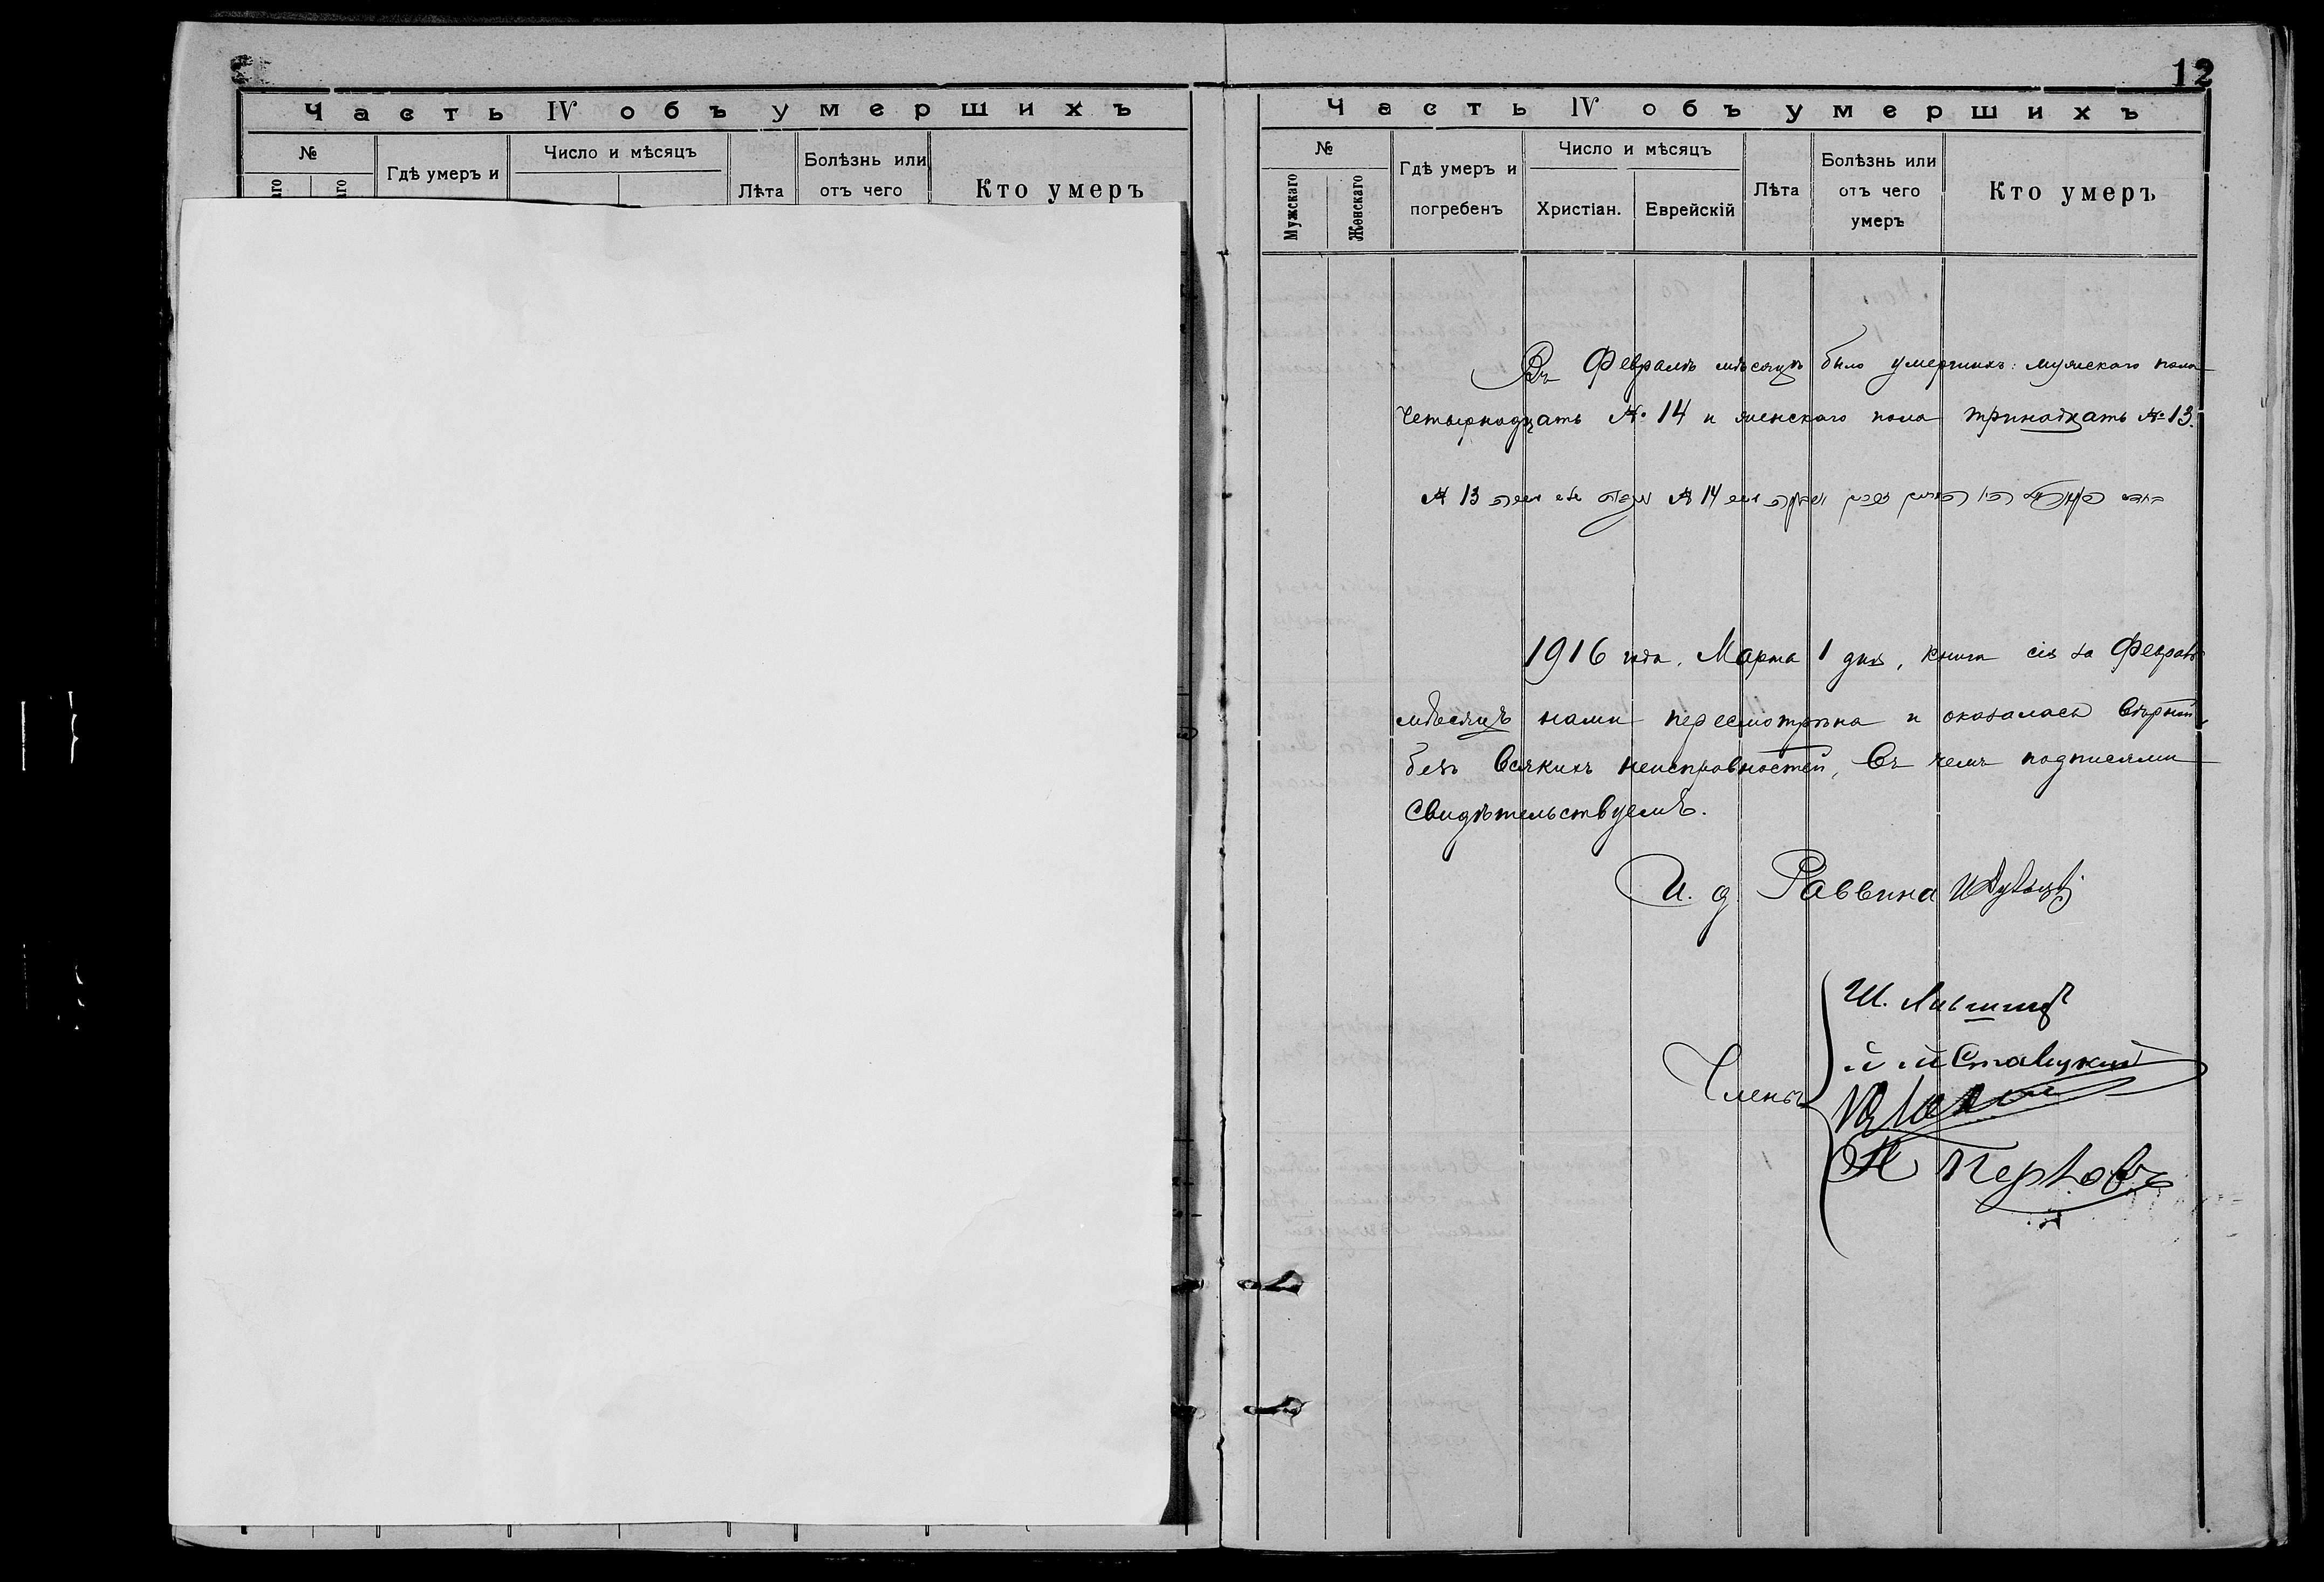 Часть IV объ умершихъ
№
Число и мѣсяцъ
Гдѣ умеръ и
Лѣта
Болѣзнь или
отъ чего
Кто умеръ
12
Часть IV объ умершихъ
№
Мужскаго
Женскаго
Гдѣ умеръ и
погребенъ
Число и мѣсяцъ
Христіан.
Еврейскій
Лѣта
Болѣзнь или
отъ чего
умеръ
Кто умеръ
Въ Февралѣ мѣсяцѣ было умершихъ: мужескаго пола
Четырнадцать № 14 и женскаго пола тринадцать № 13.
№ 13 № 14
1916 года, Марта 1 дня, книга сія за Февраль
мѣсяцъ нами пересмотрѣна и оказалась вѣрной
безъ всякихъ неисправностей, въ чемъ подписями
свидѣтельствуемъ.
И. д. Раввина
Члены
Ш. Лившицъ
Ставицкий